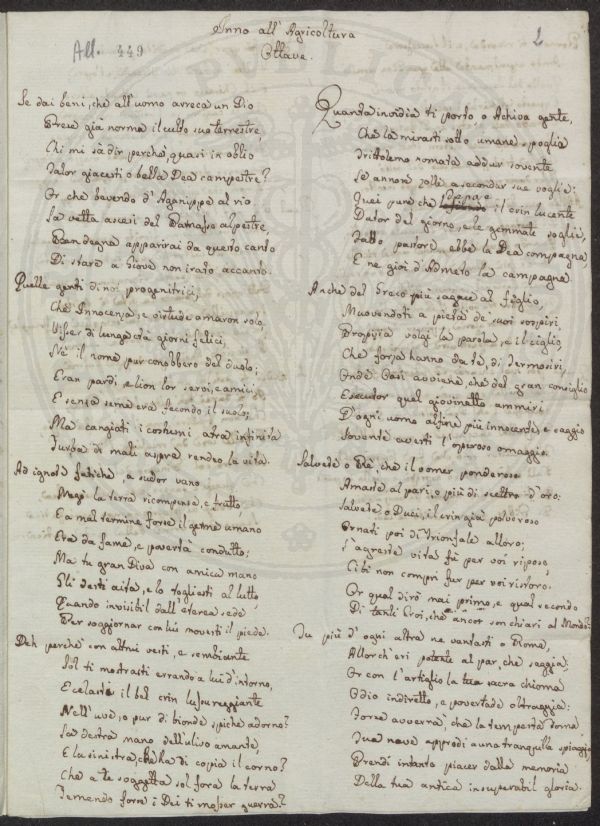 Inno all' Agricoltura
All. 449
2
Ottave.
Se dai beni, che all'uomo arreca un Dio
Prese già norma il culto suo terrestre,
Chi mi sà dir perchè quasi in oblio
Talor giacesti o bella Dea campestre?
Or che bevendo d'Aganippe al rio
La vetta ascesi del Parnasso alpestre,
Ben degna apparirai da questo canto
Di stare a Giove non irato accanto.
Quelle genti di noi progenitrici,
Che Innocenza, e virtude amaron solo,
Visser di lunga età giorni felici,
Nè il nome pur conobber del duolo;
Eran pardi, e lion lor servi, e amici
E senza seme era fecondo il suolo;
Ma cangiati i costumi atra infinita
Turba di mali aspra rendeo la vita.
Ad ignote fatiche, a sudor vano
Negò la terra ricompensa, e frutto,
E a mal termine forse il germe umano
Era da fame, e povertà condutto;
Ma tu gran Diva con amica mano
Gli desti aita, e lo togliesti al lutto,
Quando invisibil dall'eterea sede
Per soggiornar con lui movesti il piede.
Deh perchè con altrui vesti, e sembiante
Ti mostrasti errando a lui d'intorno,
E celasti il bel crin lussureggiante
Nell'uve, o pur di bionde spiche adorno?
La destra mano dell'ulivo amante,
E la sinistra, che ha di copia il corno?
Che a te soggetta sol fora la terra
Temendo forse i Dei ti mosser guerra?
Quanta invidia ti porto o Achiva gente,
Che la mirasti sotto umane spoglia
Trittolemo nomata addur sovente
Le annose zolle a secondar sue voglie:
Quei pure che depose il crin lucente
Dator del giorno, e le gemmate soglie,
Fatto pastore, ebbe la Dea compagna
E ne gioì d'Admeto la campagna.
Anche del Greco più sagace al figlio,
Muovendoti a pietà de' suoi sospiri,
Propizia volgi la parola, e il ciglio,
Che forza hanno da te, di Termosiri,
Onde così avviene, che del gran consiglio
Esecutor quel giovinetto ammiri
D'ogni uomo alfine più innocente, e saggio
Sovente averti l'operoso omaggio.
Salvete o Rè, che il vomer ponderoso
Amaste al pari, o più di scettro d'oro:
Salvete o Duci, il crin già polveroso
Ornati poi di trionfale alloro;
L'agreste vita fù per voi riposo,
Cibi non compri fur per voi ristoro.
Or qual dirò mai primo, e qual secondo
Di tanti Eroi, che ancor son chiari al Mondo?
Tu più d'ogni altra ne vantasti o Roma,
Allorch'eri potente al par, che saggia;
Or con l'artiglio la tua sacra chioma
Odio indiretto, e povertade oltraggia:
Forse avverrà, che la tempesta doma
Tua nave approdi a una tranquilla spiaggia,
Prendi intanto piacer dalla memoria
Della tua antica insuperabil gloria.